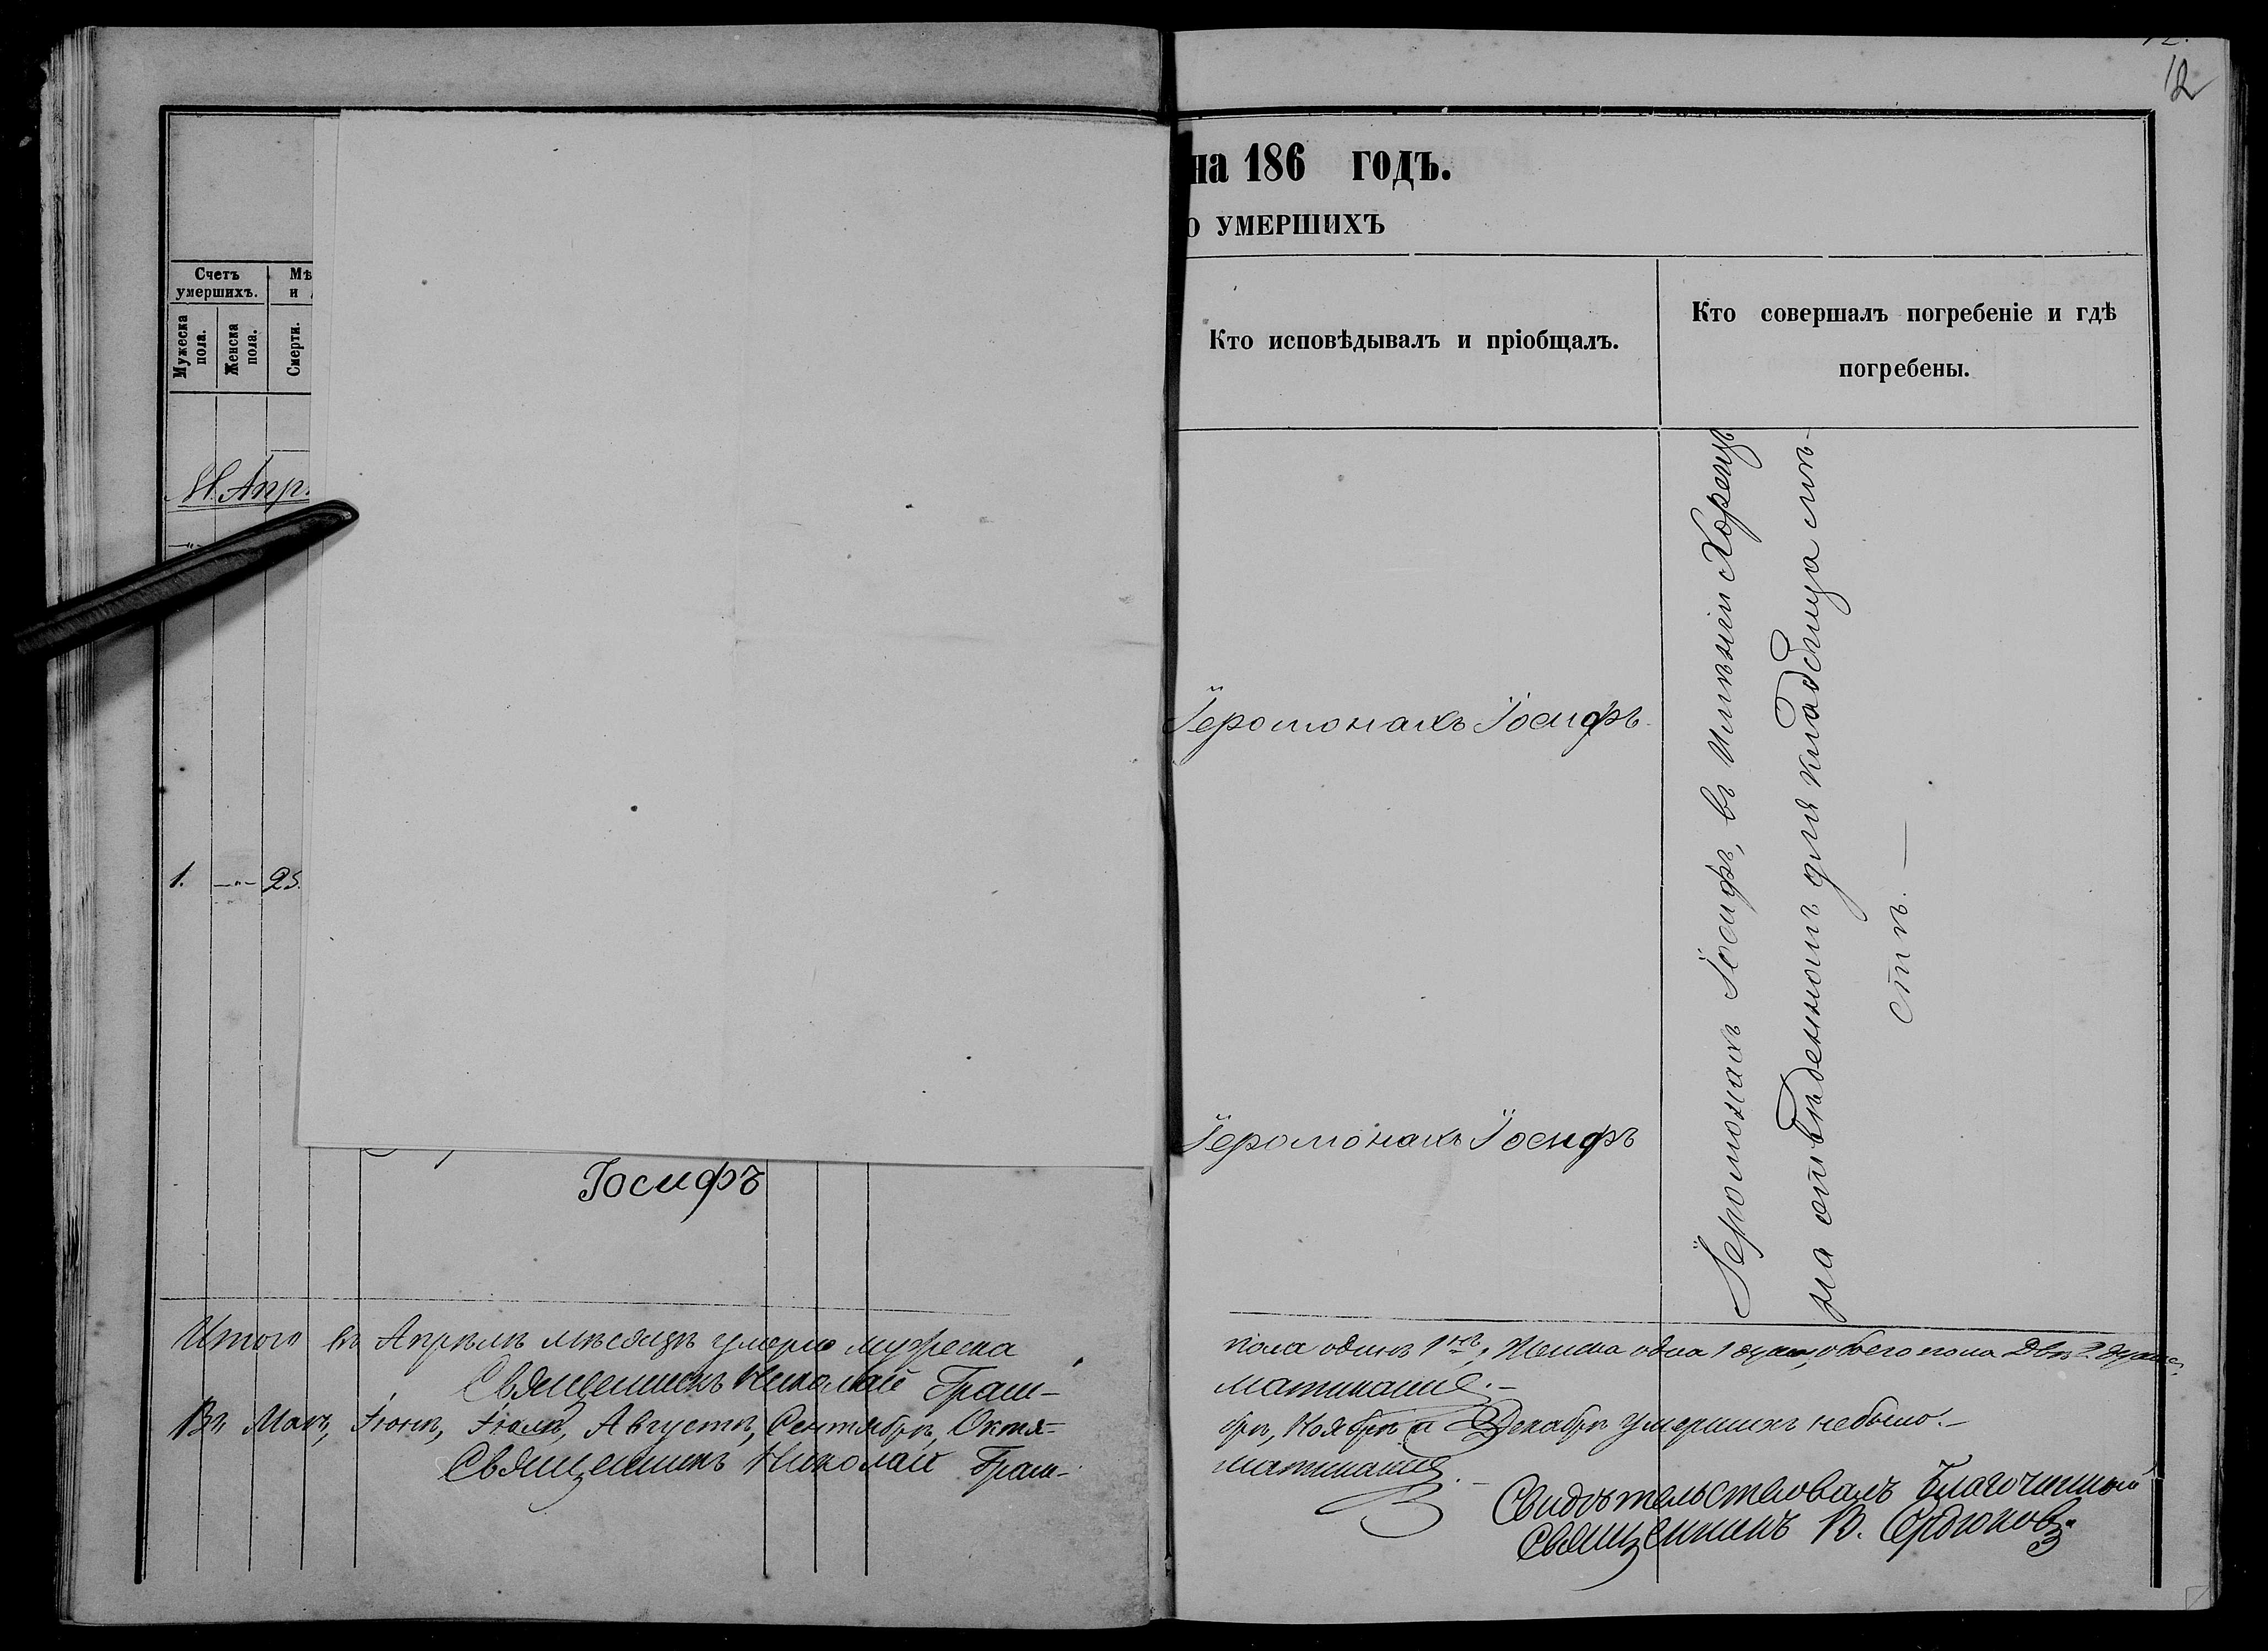 12
на 186 годъ.
О УМЕРШИХЪ
Счетъ
умершихъ.
Мужеска
пола.
Женска
пола.
Мѣ
и
Смерти.
Кто исповѣдывалъ и пріобщалъ.
Кто совершалъ погребеніе и гдѣ
погребены.
М. Апр.
Іеромонахъ Іосифъ.
1. —"— 25.
Іеромонахъ Іосифъ
Іеромонахъ Іосифъ, въ Имѣніи Хорещъ
на отвѣденномъ для кладбища мѣ-
стѣ.—
Іосифъ
Итого въ Апрѣлѣ мѣсяцѣ умерло мужеска
пола одинъ 1нъ, Женска одна 1 душа, обоего пола Двѣ 2 души.
Священникъ Николай Грам-
матикати.—
Въ Маѣ, Іюнѣ, Іюлѣ, Августѣ, Сентябрѣ, Октя-
брѣ, Ноябрѣ и Декабрѣ умершихъ небыло.—
Священникъ Николай Грам-
матикати.—
Свидѣтельствовалъ Благочинный
Священникъ В. Сердюковъ.